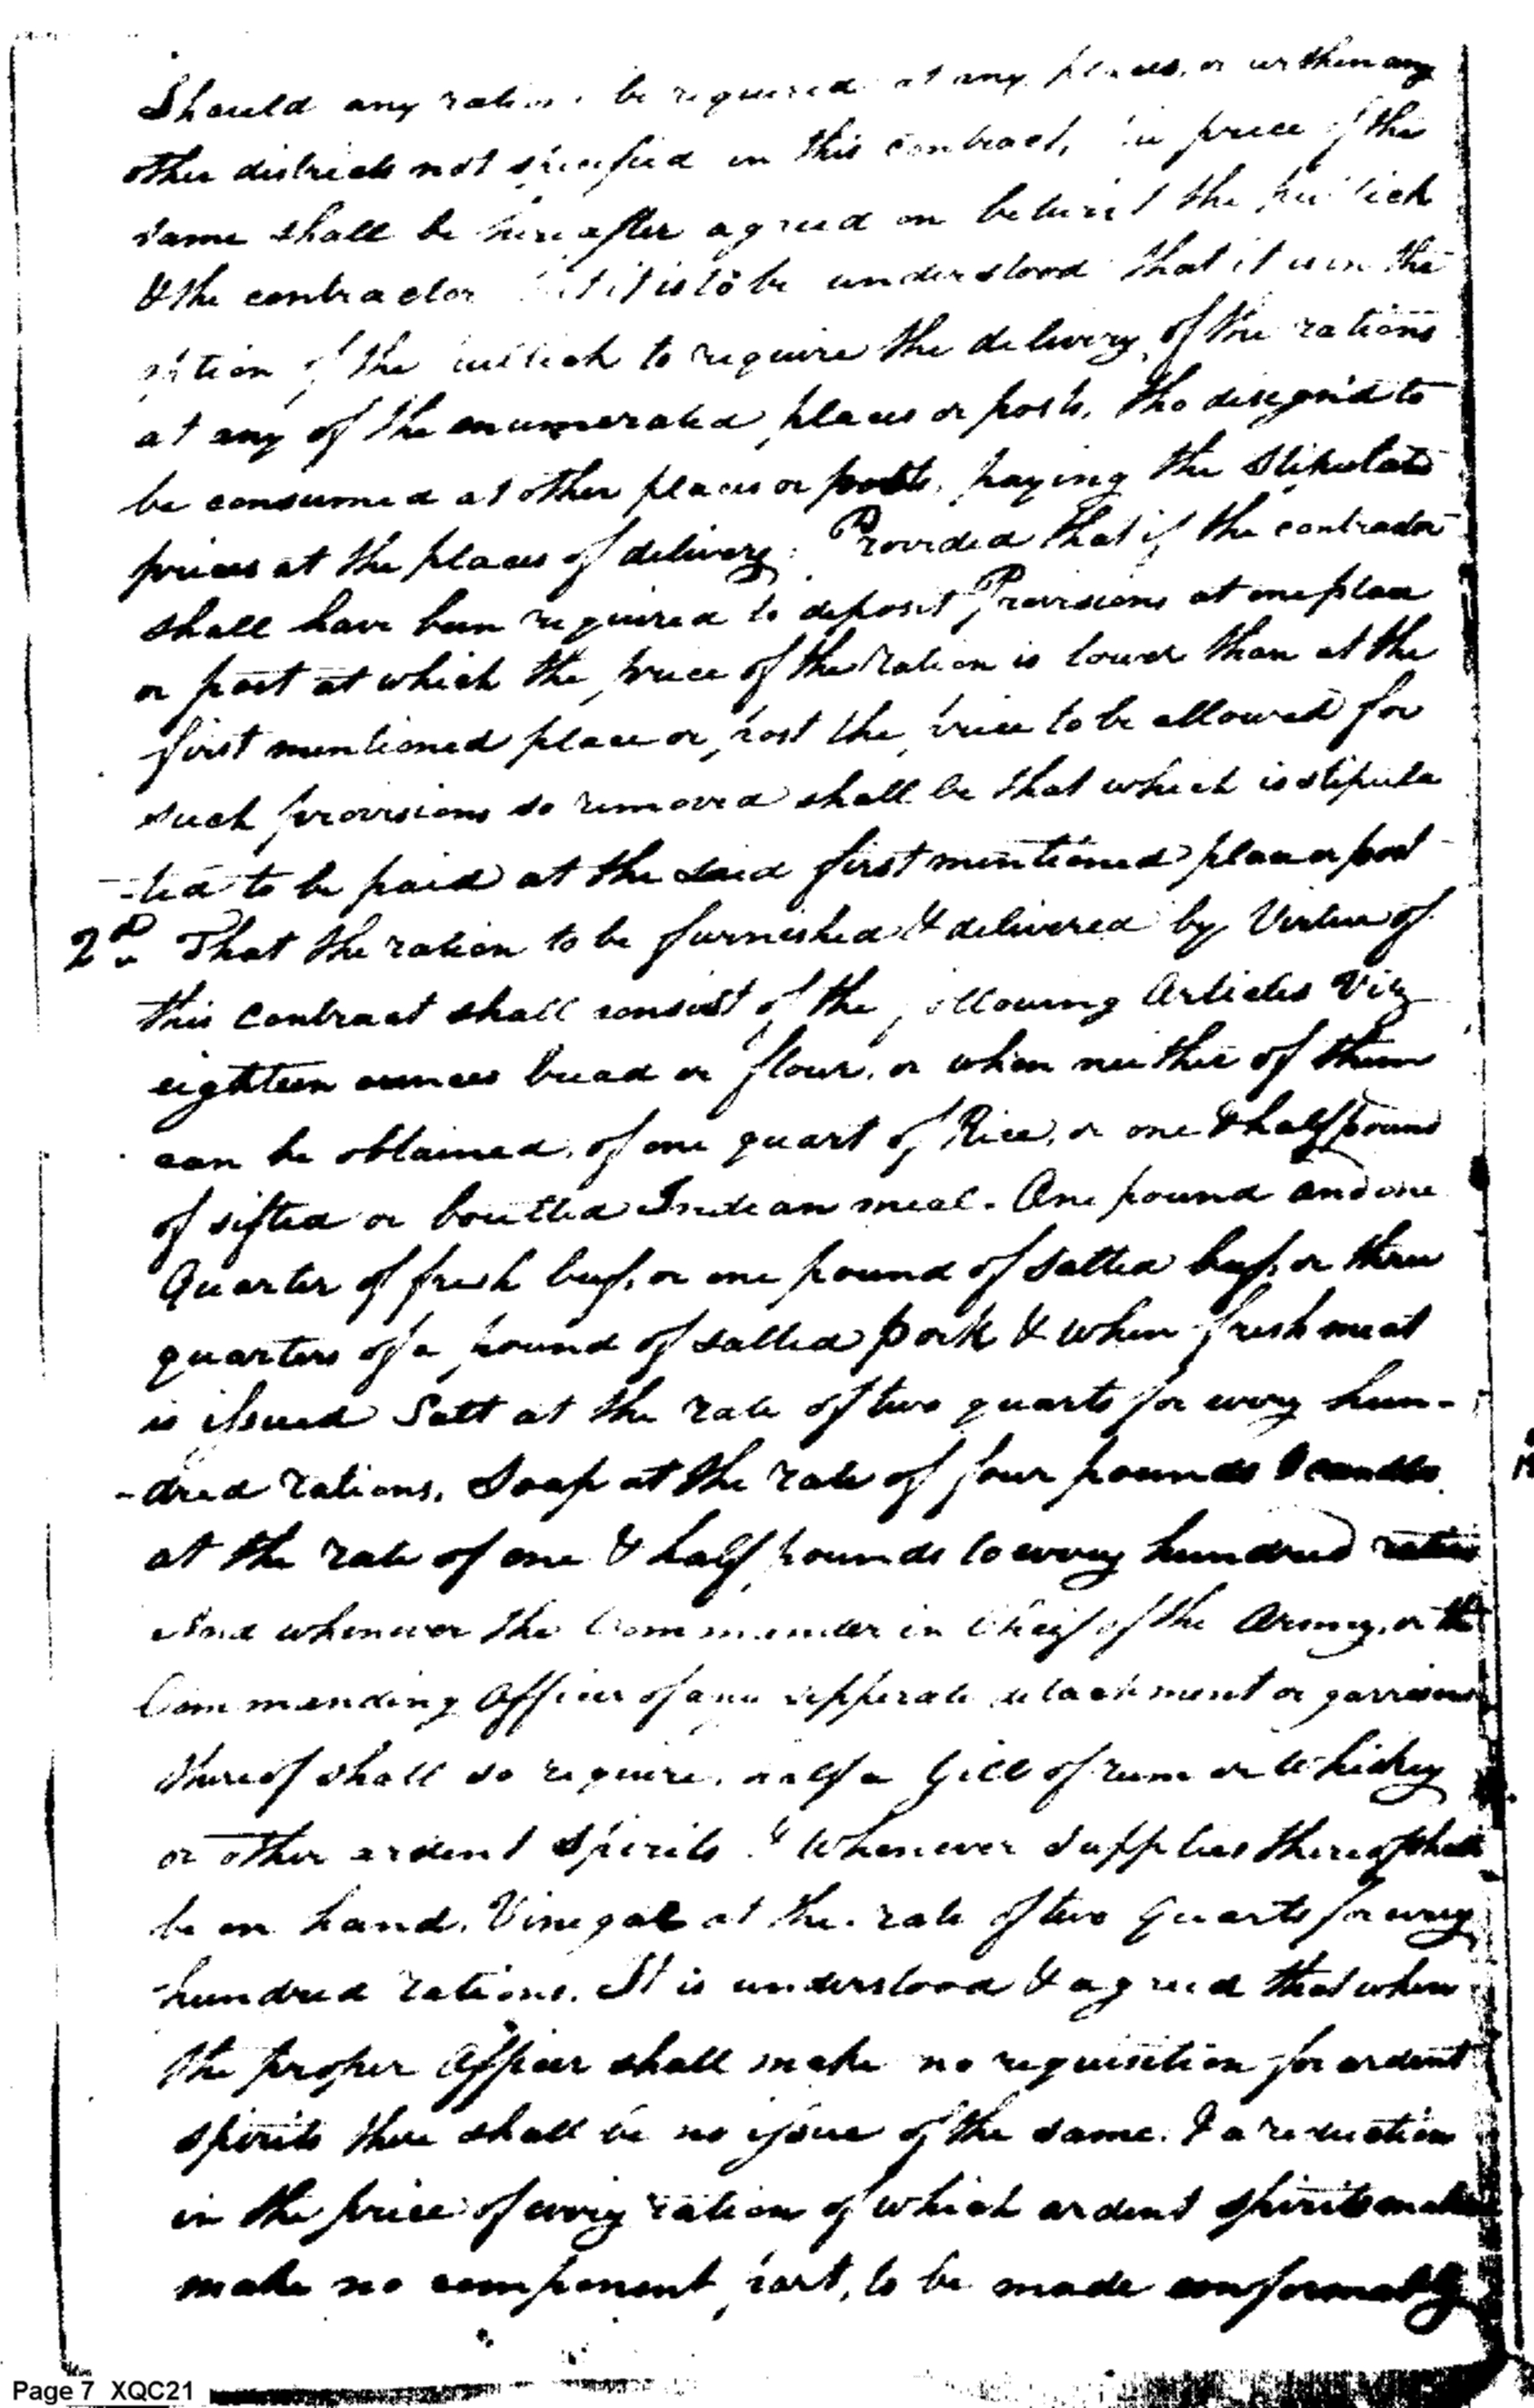 Should any rations be required at any places, or within any
other districts not specified in this contract, the price of the
same shall be hereafter agreed on betwixt the publick
& the contractor but it is to be understood that it is in the
option of the publick to require the delivery of the rations
at any of the enumerated places or posts, tho design'd to
be consumed at other places or posts, paying the stipulated
prices at the places of delivery. Provided that if the contractor
shall have been required to deposit Provisions at one place
or post at which the price of the Ration is lower than at the
first mentioned place or post the price to be allowed for
such provisions so removed shall be that which is stipula
-ted to be paid at the said first mentioned place or post
2d. That the ration to be furnished & delivered by Virtue of
this Contract shall consist of the following Articles Viz
eighteen ounces bread or flour, or when neither of them
can be obtained, of one quart of Rice, or one & half pound
of sifted or boulted Indean meal. One pound and one
Quarter of fresh beef, or one pound of salted beef, or three
quarters of a pound of salted pork & when fresh meat
is issued Salt at the rate of two quarts for every hun-
-dred rations, Soap at the rate of four pounds & candles
at the rate of one & half pounds to every hundred rations
And whenever the Commander in Chief of the Army, or the
Commanding Officer of any sepperate detachment or garrison
thereof shall so require, half a Gill of rum or Whiskey
or other ardent Spirits & Whenever supplies thereof shall
be on hand. Vinegar at the rate of two Quarts for every
hundred rations. It is understood & agreed that when
the proper Officer shall make no requisition for ardent
spirits there shall be no issue of the same. & a reduction
in the price of every ration of which ardent spirits make
make no component part, to be made conformably
Page 7 XQC21